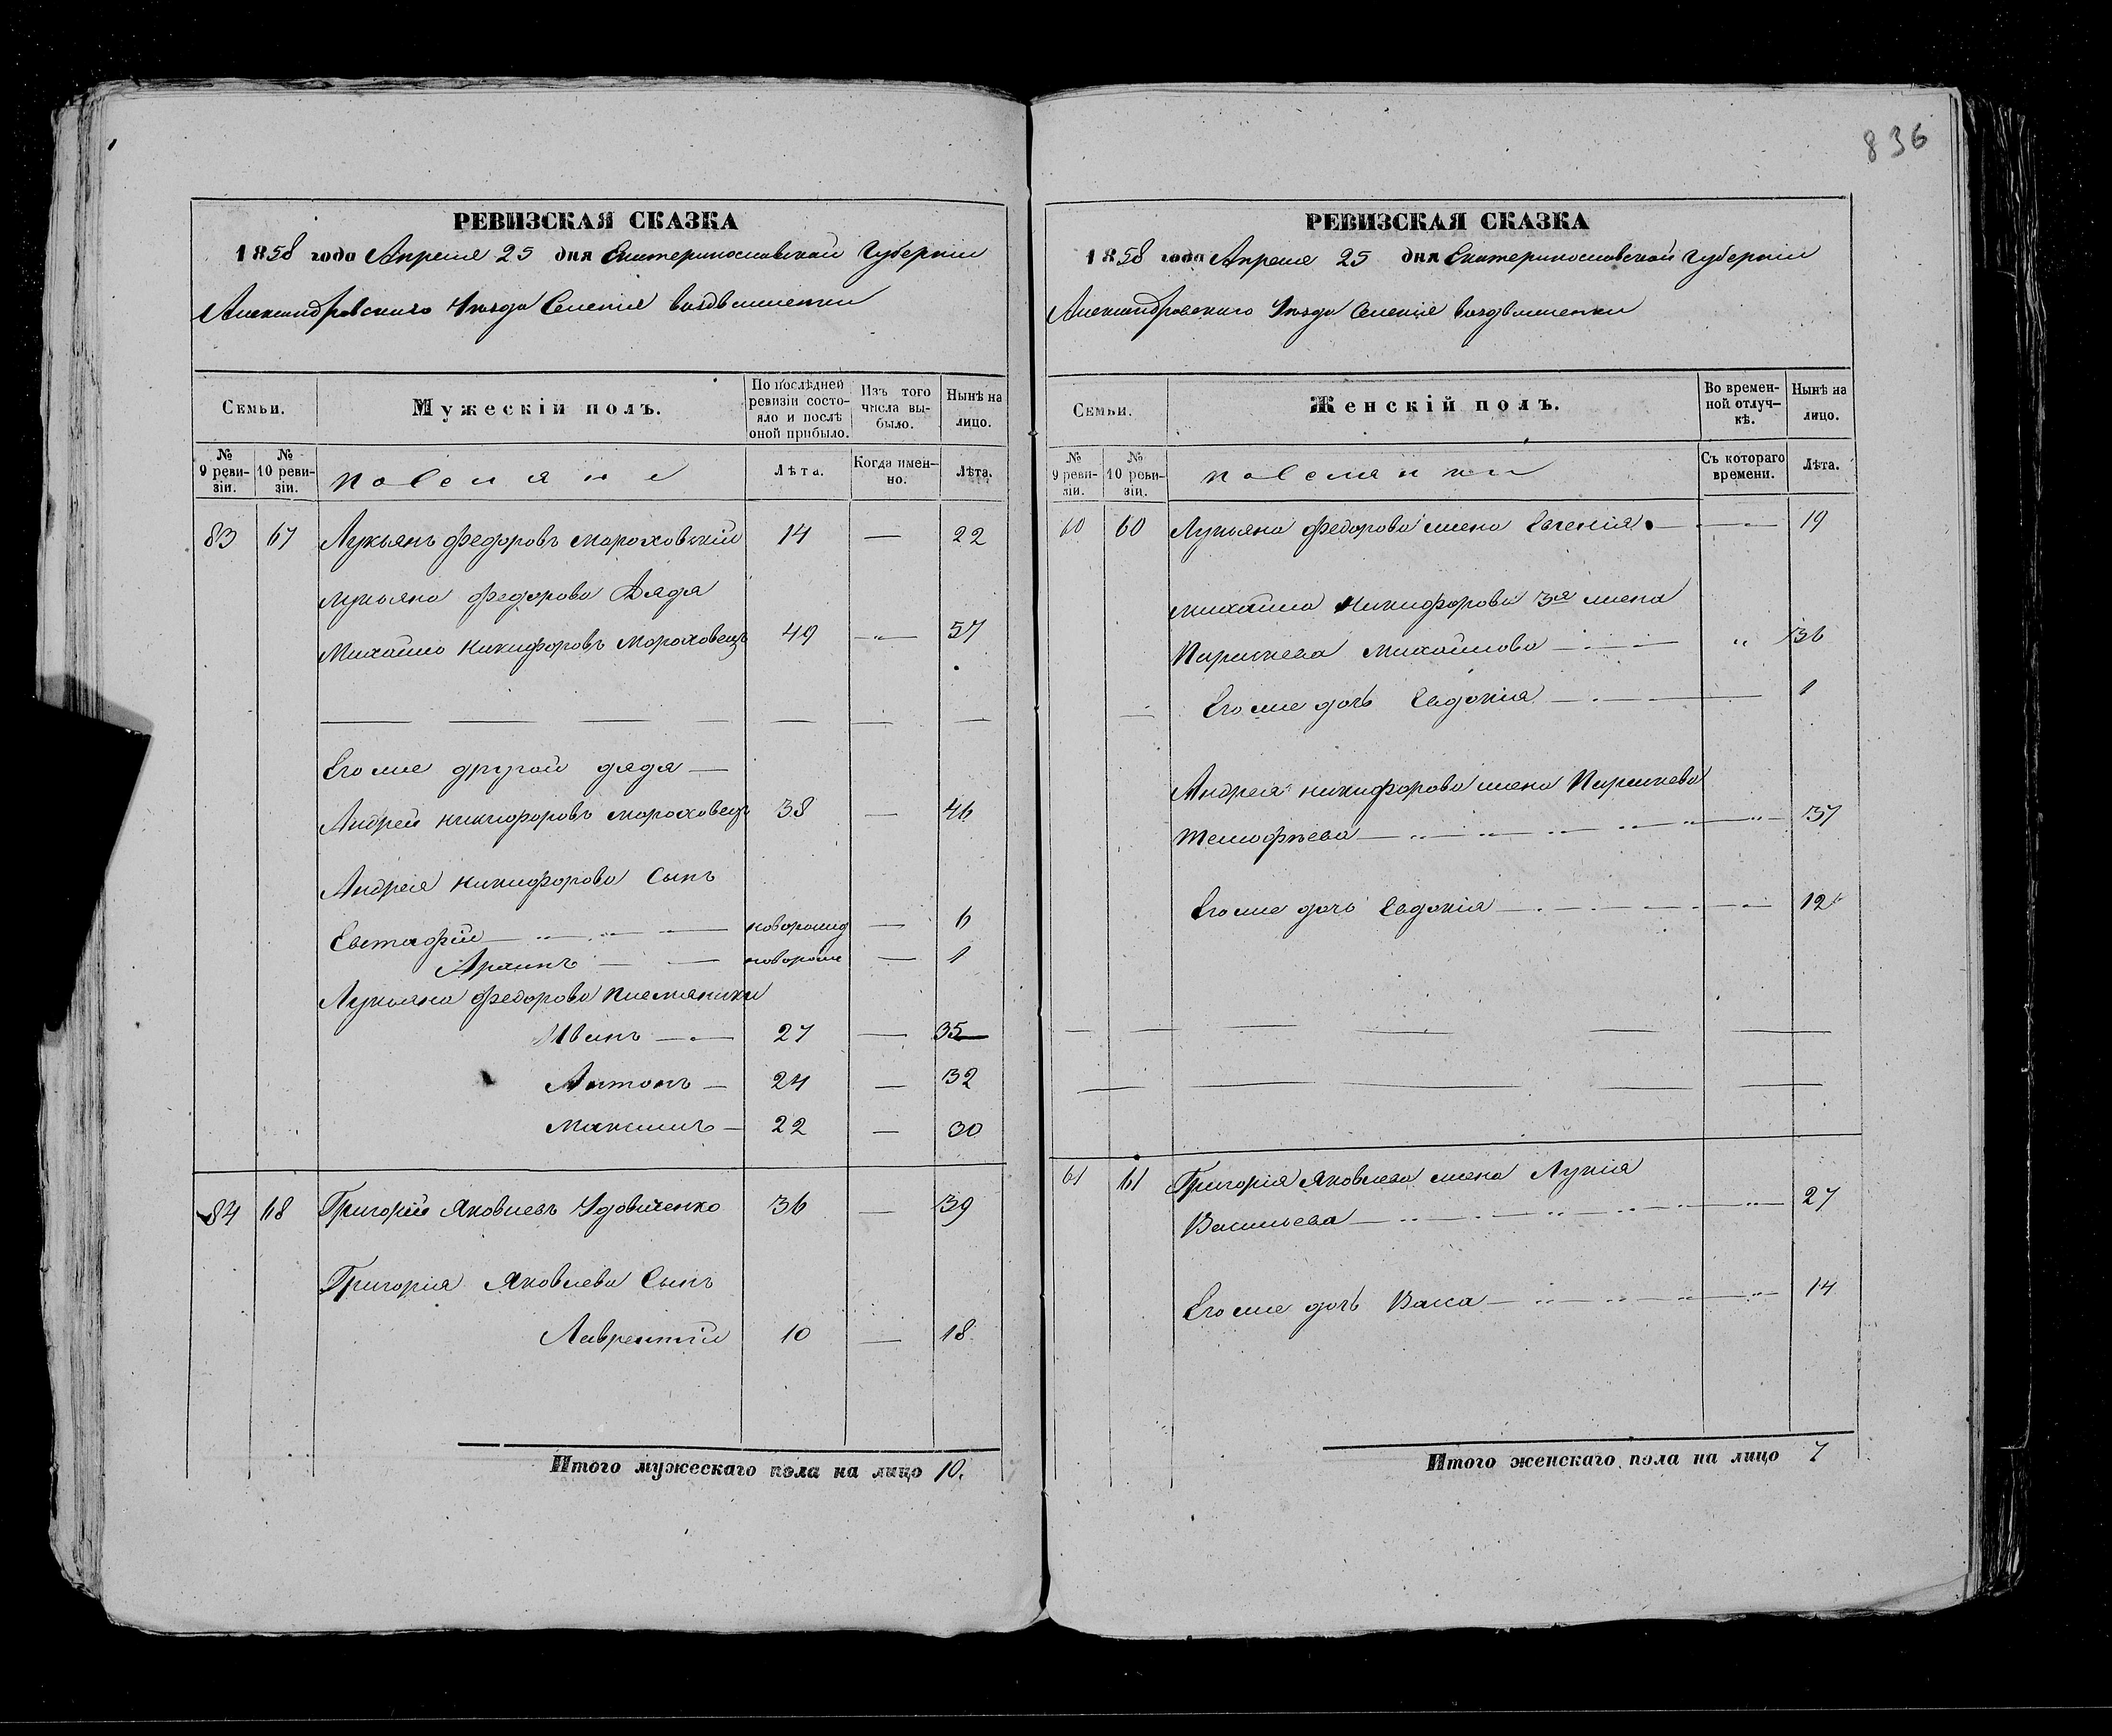 836
РЕВИЗСКАЯ СКАЗКА
1858 года Апреля 25 дня Екатеринославской Губернии
Александровского Уезда Селения Воздвиженки
Семьи.
Мужескій полъ.
По послѣдней ревизіи состояло и послѣ оной прибыло.
Изъ того числа выбыло.
Нынѣ на лицо.
№ 9 ревизіи.
№ 10 ревизіи.
поселяне
Лѣта.
Когда именно.
Лѣта.
83 67 Лукьянъ Федоровъ Мороховскій 14 — 22
Лукьяна Федорова Дядя
Михайло Никифоровъ Мороховецъ 49 — " — 57
Его же другой дядя —
Андрей Никифоровъ Мороховецъ 38 — 46
Андрея Никифорова Сынъ
Евстафій — новорожд — 6
новорож — 1
Лукьяна Федорова племяники
Иванъ — 27 — 35
Антонъ — 24 — 32
Максимъ — 22 — 30
84 68 Григорій Яковлевъ Удовиченко 36 — 39
Григорія Яковлева Сынъ
Лаврентій 10 — 18
Итого мужескаго пола на лицо 10.
РЕВИЗСКАЯ СКАЗКА
1858 года Апреля 25 дня Екатеринославской Губернии
Александровского Уезда Селения Воздвиженки
Семьи.
Женскій полъ.
Во временной отлучкѣ.
Нынѣ на лицо.
№ 9 ревизіи.
№ 10 ревизіи.
поселянки
Съ котораго времени.
Лѣта.
60 60 Лукьяна Федорова жена Евгенія — 19
Михайла Никифорова 3я жена
Парижкева Михайлова — " 36
Его же дочь Евдокія — 1
Андрея Никифорова жена Парижкева
Тимофѣева — 37
Его же дочь Евдокія — 12
61 61 Григорія Яковлева жена Лукія
Васильева — 27
Его же дочь Васса — 14
Итого женскаго пола на лицо 7